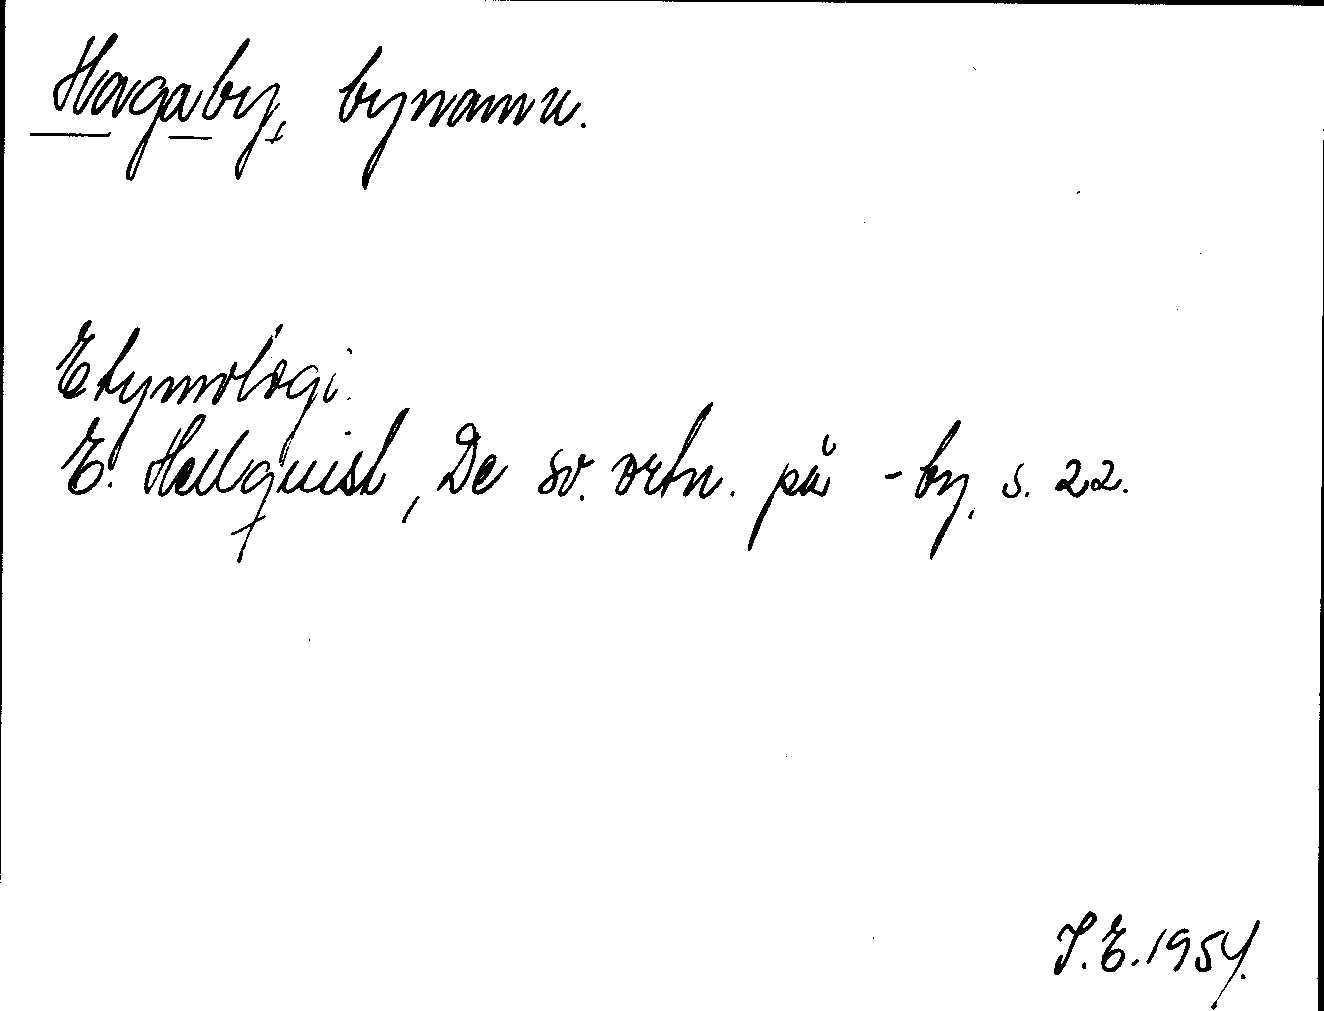 Hagaby, bynamn.
Etymologi.
E. Hellquist, De sv. ortn. på -by, s. 22.
I.E. 1954.